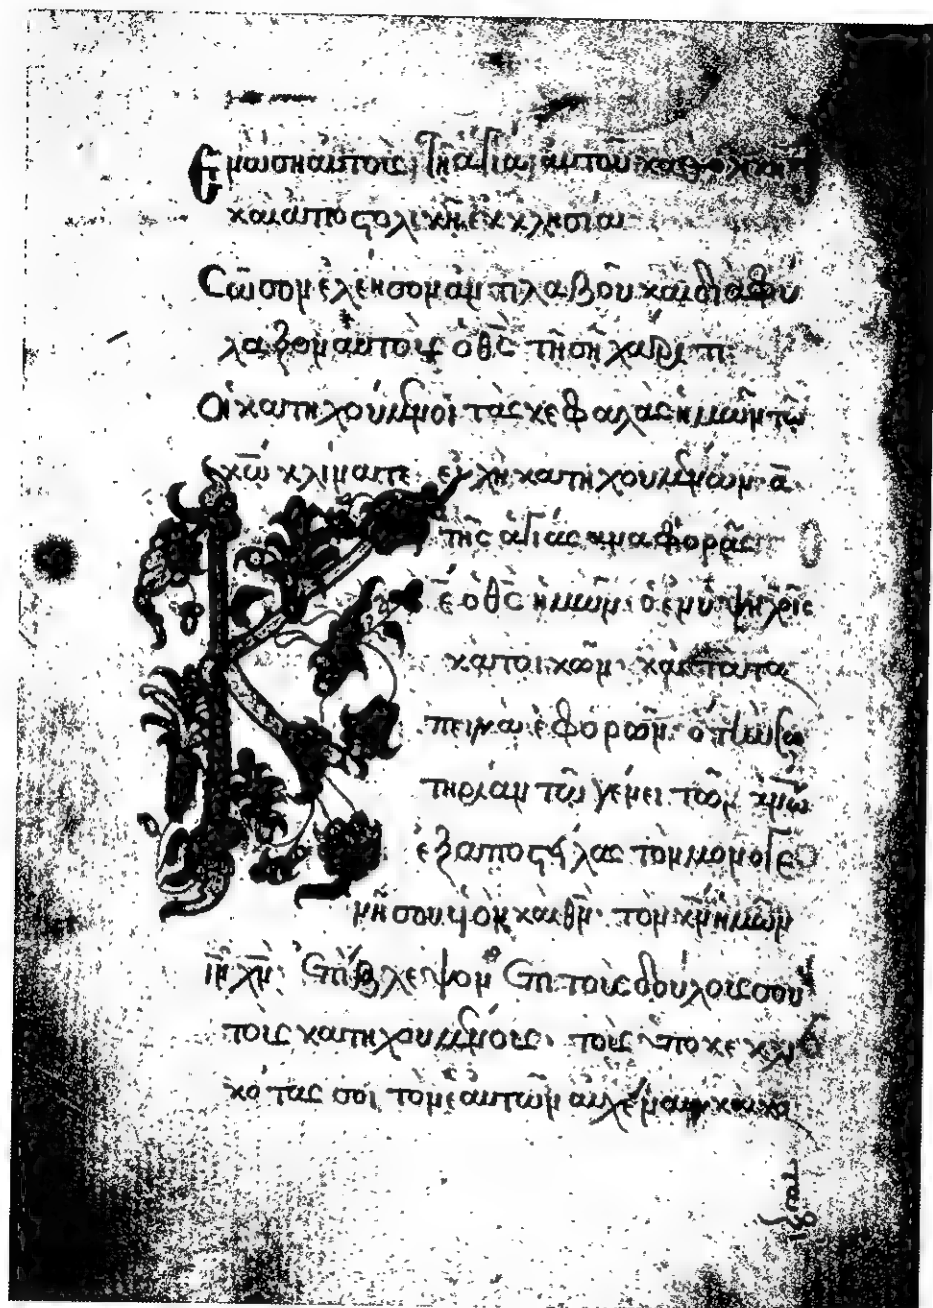 Ἑνώση αὐτοὺς τῇ ἁγίᾳ αὐτοῦ καθολικῇ
καὶ ἀποστολικῇ ἐκκλησίᾳ
Σῶσον ἐλέησον ἀντιλαβοῦ καὶ διαφύ
λαξον αὐτοὺς ὁ θς τῇ σῇ χάριτι
Οἱ κατηχούμενοι τὰς κεφαλὰς ἡμῶν τῷ
κω κλίνατε εὐχὴ κατηχουμένων α
τῆς ἁγίας ἀναφορᾶς
Κε ὁ θς ἡμῶν ὁ ἐν ὑψηλοῖς
κατοικῶν καὶ τὰ τα
πεινὰ ἐφορῶν ὁ τὴν σω
τηρίαν τῷ γένει τῶν ανων
ἐξαποστείλας τὸν μονογε
νῆ σου υἱὸν καὶ θν τὸν κν ἡμῶν
ιν χν ἐπίβλεψον ἐπὶ τοὺς δούλους σου
τοὺς κατηχουμένους τοὺς ὑποκεκλι
κότας σοι τὸν ἑαυτῶν αὐχένα καὶ κα